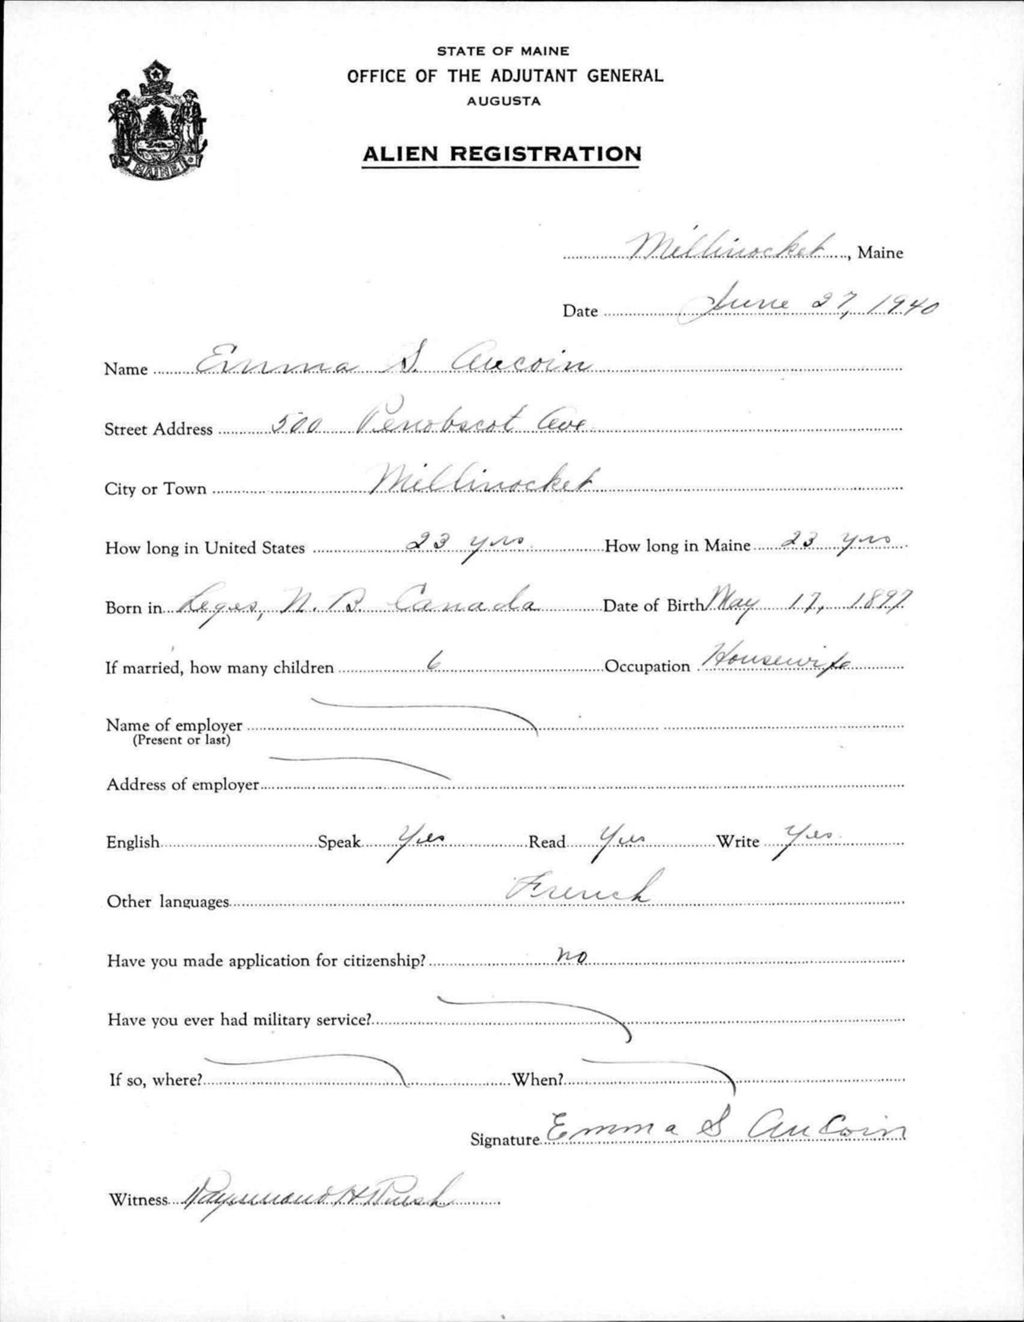 STATE OF MAINE
OFFICE OF THE ADJUTANT GENERAL
AUGUSTA
ALIEN REGISTRATION
MAINE
Millinocket, Maine
Date June 27, 1940
Name Emma S. Aucoin
Street Address 500 Penobscot Ave
City or Town Millinocket
How long in United States 23 yrs How long in Maine 23 yrs
Born in N. B. Canada Date of Birth May 17, 1897
If married, how many children 6 Occupation Housewife
Name of employer
(Present or last)
Address of employer
English Speak Yes Read Yes Write Yes
Other languages French
Have you made application for citizenship? no
Have you ever had military service?
If so, where? When?
Signature Emma S AuCoin
Witness Raymond H